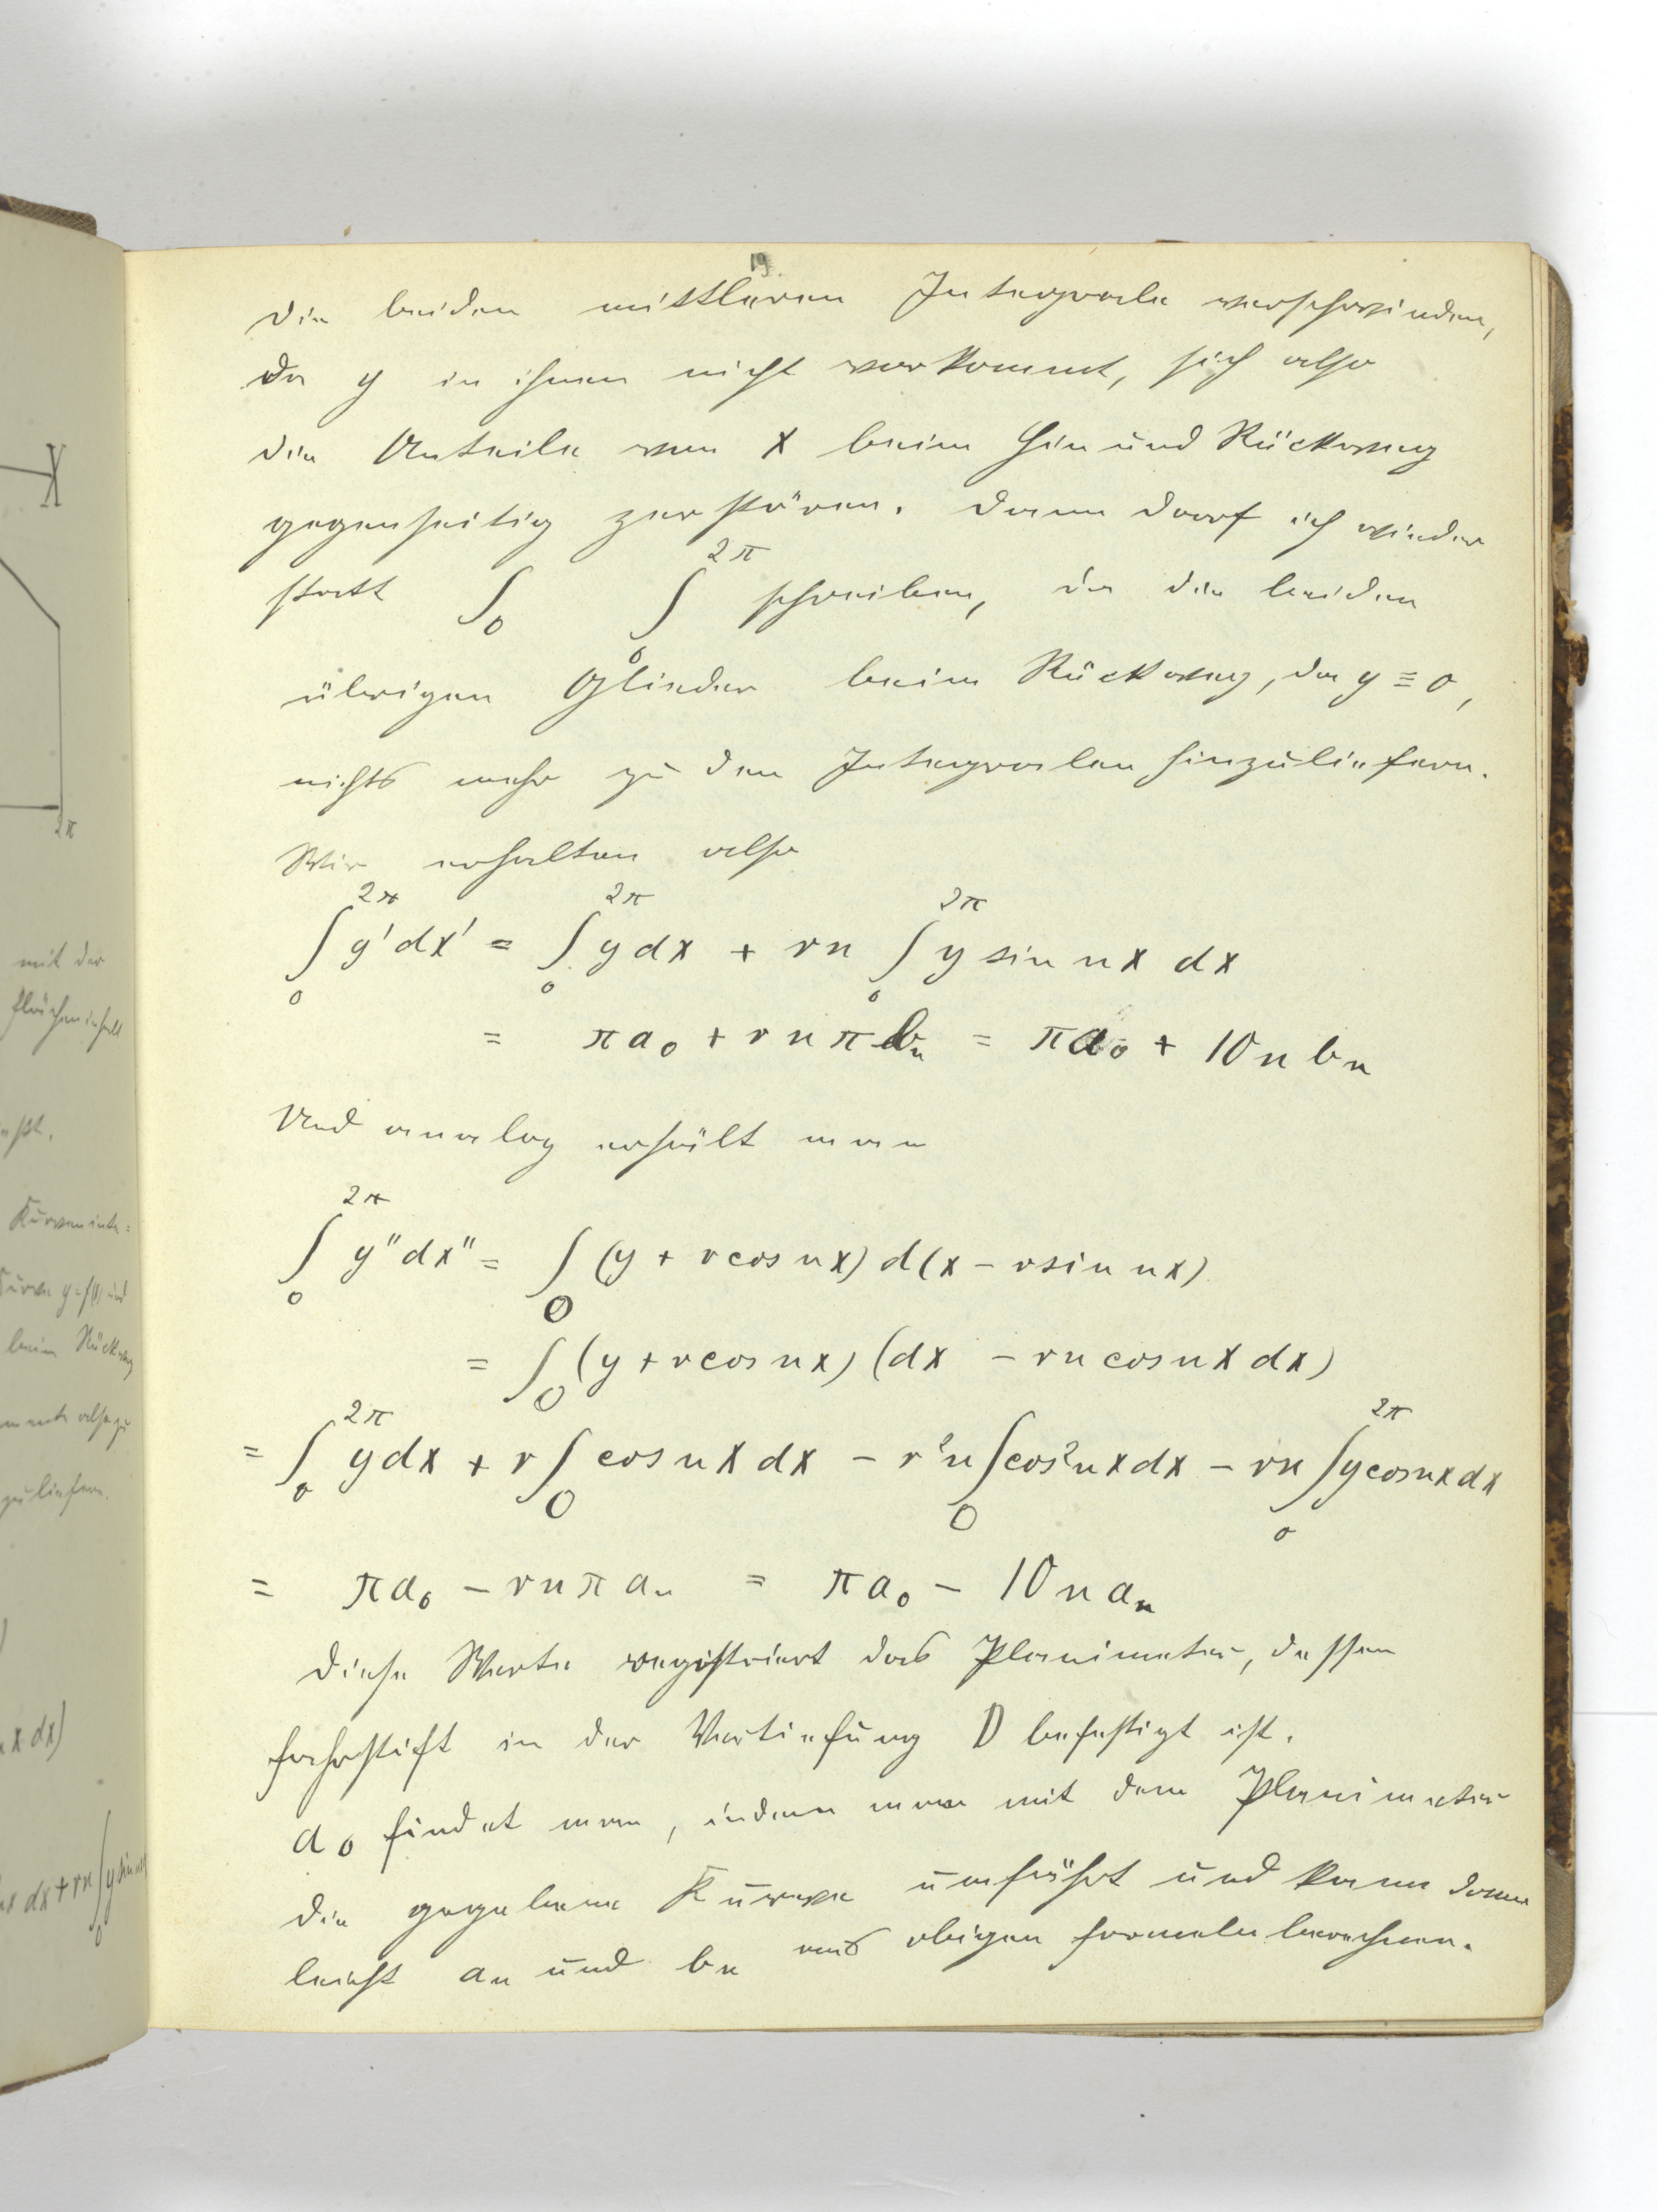 19.
Die beiden mittleren Integrale verschwinden,
da y in ihnen nicht vorkommt, sich also
die Anteile von x beim Hin und Rückweg
gegenseitig zerstören. Dann darf ich wieder
statt ∫₀ ∫₀^2π schreiben, da die beiden
übrigen Glieder beim Rückweg, da y ≡ 0,
nichts mehr zu den Integralen hinzuliefern.
Wir erhalten also
∫₀^2π y'dx' = ∫₀^2π y dx + rn ∫₀^2π y sin nx dx
= πa₀ + rnπbₙ = πa₀ + 10 n bₙ
Und analog erhält man
∫₀^2π y''dx'' = ∫₀ (y + r cos nx) d(x − r sin nx)
= ∫₀ (y + r cos nx) (dx − rn cos nx dx)
= ∫₀^2π y dx + r ∫₀ cos nx dx − r²n ∫₀ cos²nx dx − rn ∫₀^2π y cos nx dx
= πa₀ − rnπaₙ = πa₀ − 10 n aₙ
Diese Werte registriert das Planimeter, dessen
Fahrstift in der Vertiefung D befestigt ist.
a₀ findet man, indem man mit dem Planimeter
die gegebene Kurve umfährt und kann dann
leicht aₙ und bₙ aus obigen Formeln berechnen.
X
2π
mit der
Flächeninhalt
Kurveninte=
Kurve y=f(x) und
beim Rückweg
also zu
zu liefern.
x dx)
dx + rn ∫₀ y sin